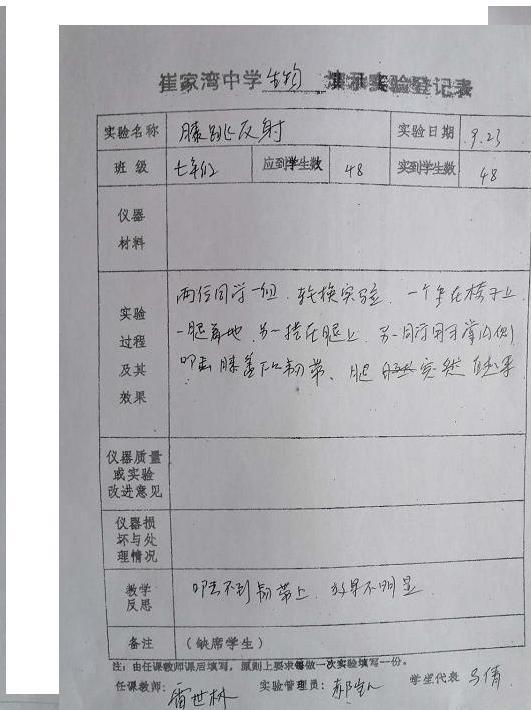 崔家湾中学生物 演示实验登记表
实验名称 膝跳反射 实验日期 9.23
班级 七年级 应到学生数 48 实到学生数 48
仪器
材料
实验
过程
及其
效果
两位同学一组、轮换实验、一个坐在椅子上
一腿着地 另一搭在腿上、另一同学用手掌内侧
叩击膝盖下韧带、腿 突然
仪器质量
或实验
改进意见
仪器损
坏与处
理情况
教学
反思
叩击不到韧带上、效果不明显
备注 (缺席学生)
注:由任课教师课后填写,原则上要求每做一次实验填写一份。
任课教师: 雷世林 实验管理员: 学生代表 马倩